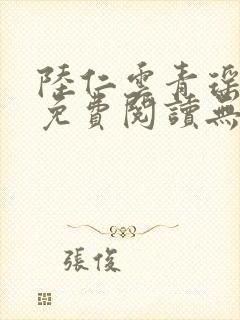 陸仁雲青瑶
免費閱讀無
張俊